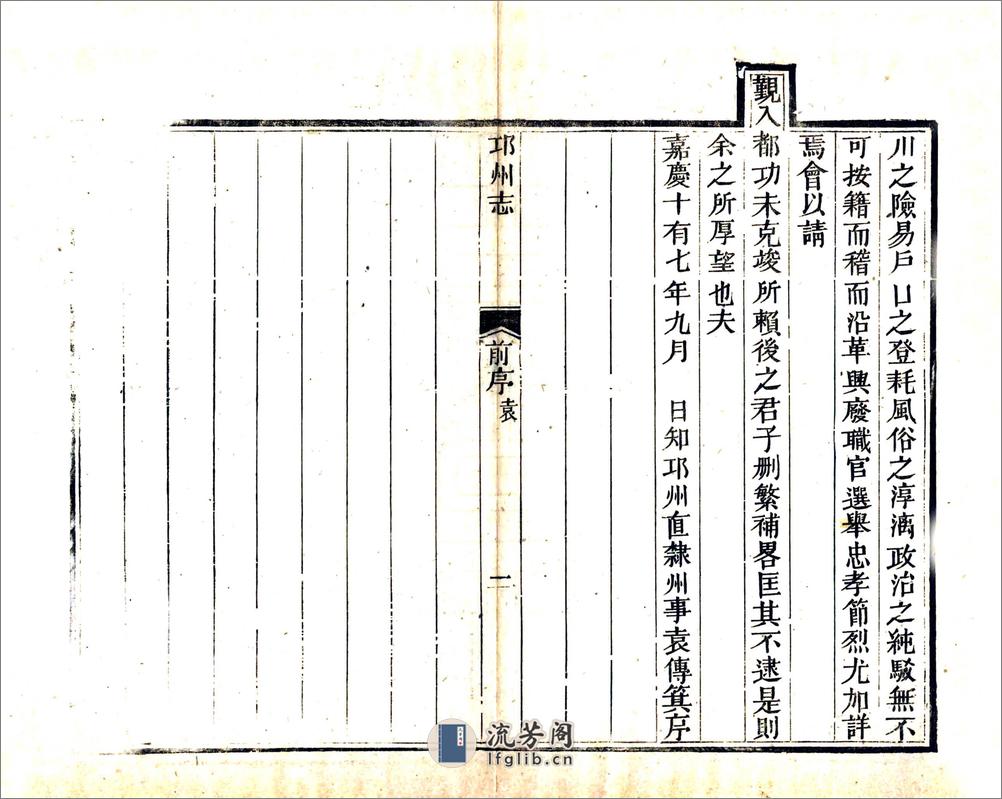 川之險易戶口之登耗風俗之淳漓政治之純駁無不
可按籍而稽而沿革興廢職官選舉忠孝節烈尤加詳
焉會以請
覲入都功未克竣所賴後之君子刪繁補畧匡其不逮是則
余之所厚望也夫
嘉慶十有七年九月　日知邛州直隸州事袁傳箕序
邛州志
前序
袁
一
流芳阁
lfglib.cn